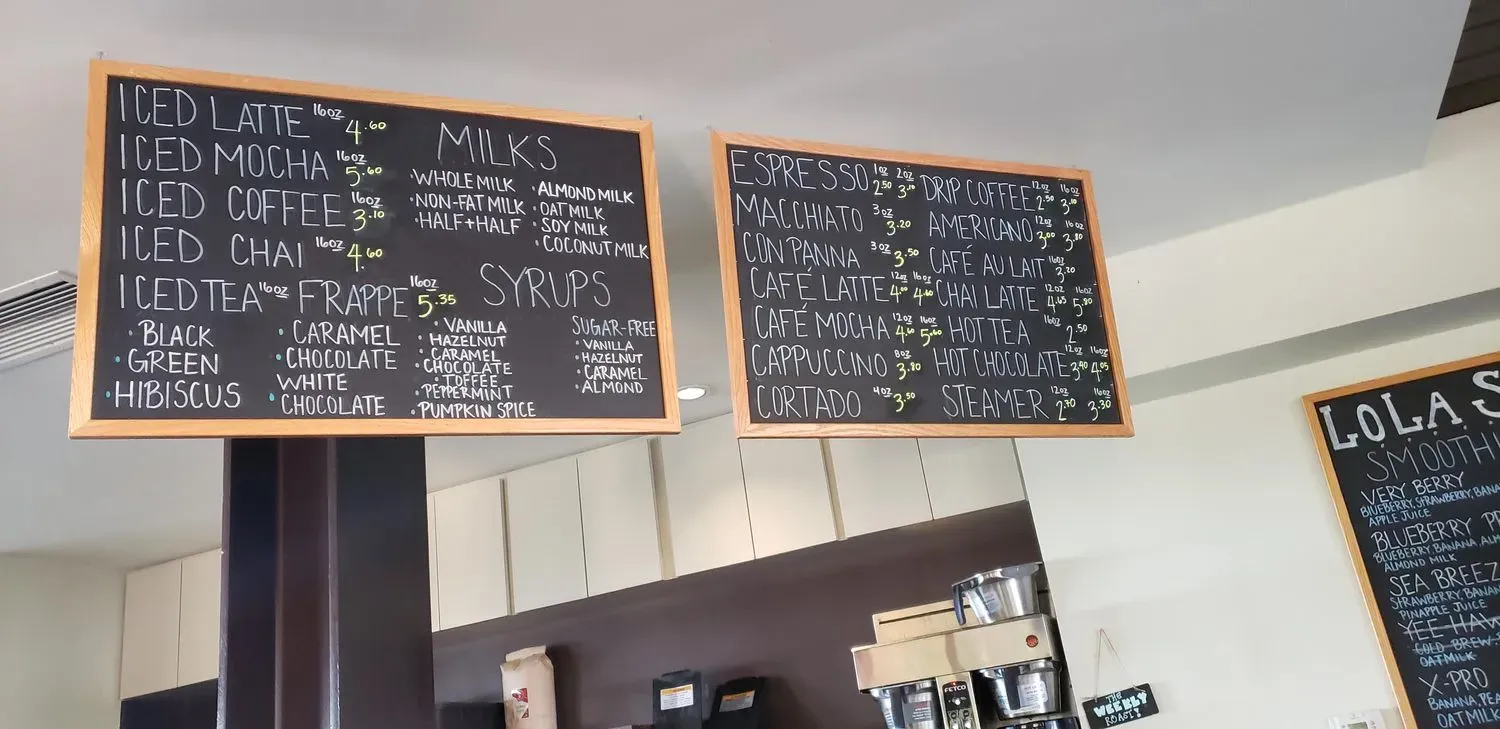 ICED LATTE 16oz 4.60
ICED MOCHA 16oz 5.60
ICED COFFEE 16oz 3.10
ICED CHAI 16oz 4.60
ICED TEA 16oz FRAPPE 16oz 5.35
• BLACK
• GREEN
• HIBISCUS
• CARAMEL
• CHOCOLATE
WHITE
• CHOCOLATE
MILKS
• WHOLE MILK
• NON-FAT MILK
• HALF+HALF
• ALMOND MILK
• OAT MILK
• SOY MILK
• COCONUT MILK
SYRUPS
• VANILLA
• HAZELNUT
• CARAMEL
• CHOCOLATE
• TOFFEE
• PEPPERMINT
• PUMPKIN SPICE
SUGAR-FREE
• VANILLA
• HAZELNUT
• CARAMEL
• ALMOND
ESPRESSO 1oz 2.50 2oz 3.10
MACCHIATO 3oz 3.20
CON PANNA 3oz 3.50
CAFÉ LATTE 12oz 4.00 16oz 4.60
CAFÉ MOCHA 12oz 4.60 16oz 5.60
CAPPUCCINO 8oz 3.80
CORTADO 4oz 3.50
DRIP COFFEE 12oz 2.50 16oz 3.10
AMERICANO 12oz 3.00 16oz 3.80
CAFÉ AU LAIT 16oz 3.20
CHAI LATTE 12oz 4.65 16oz 5.80
HOT TEA 16oz 2.50
HOT CHOCOLATE 12oz 3.40 16oz 4.05
STEAMER 12oz 2.70 16oz 3.30
LOLA
SMOOTHI
VERY BERRY
BLUEBERRY, STRAWBERRY, BANA
APPLE JUICE
BLUEBERRY PR
BLUEBERRY, BANANA, ALM
ALMOND MILK
SEA BREEZ
STRAWBERRY, BANAN
PINAPPLE JUICE
YEE-HAW
COLD BREW
OATMILK
X-PRO
BANANA, PEA
OATMILK
FETCO
THE
WEEKLY
ROAST!